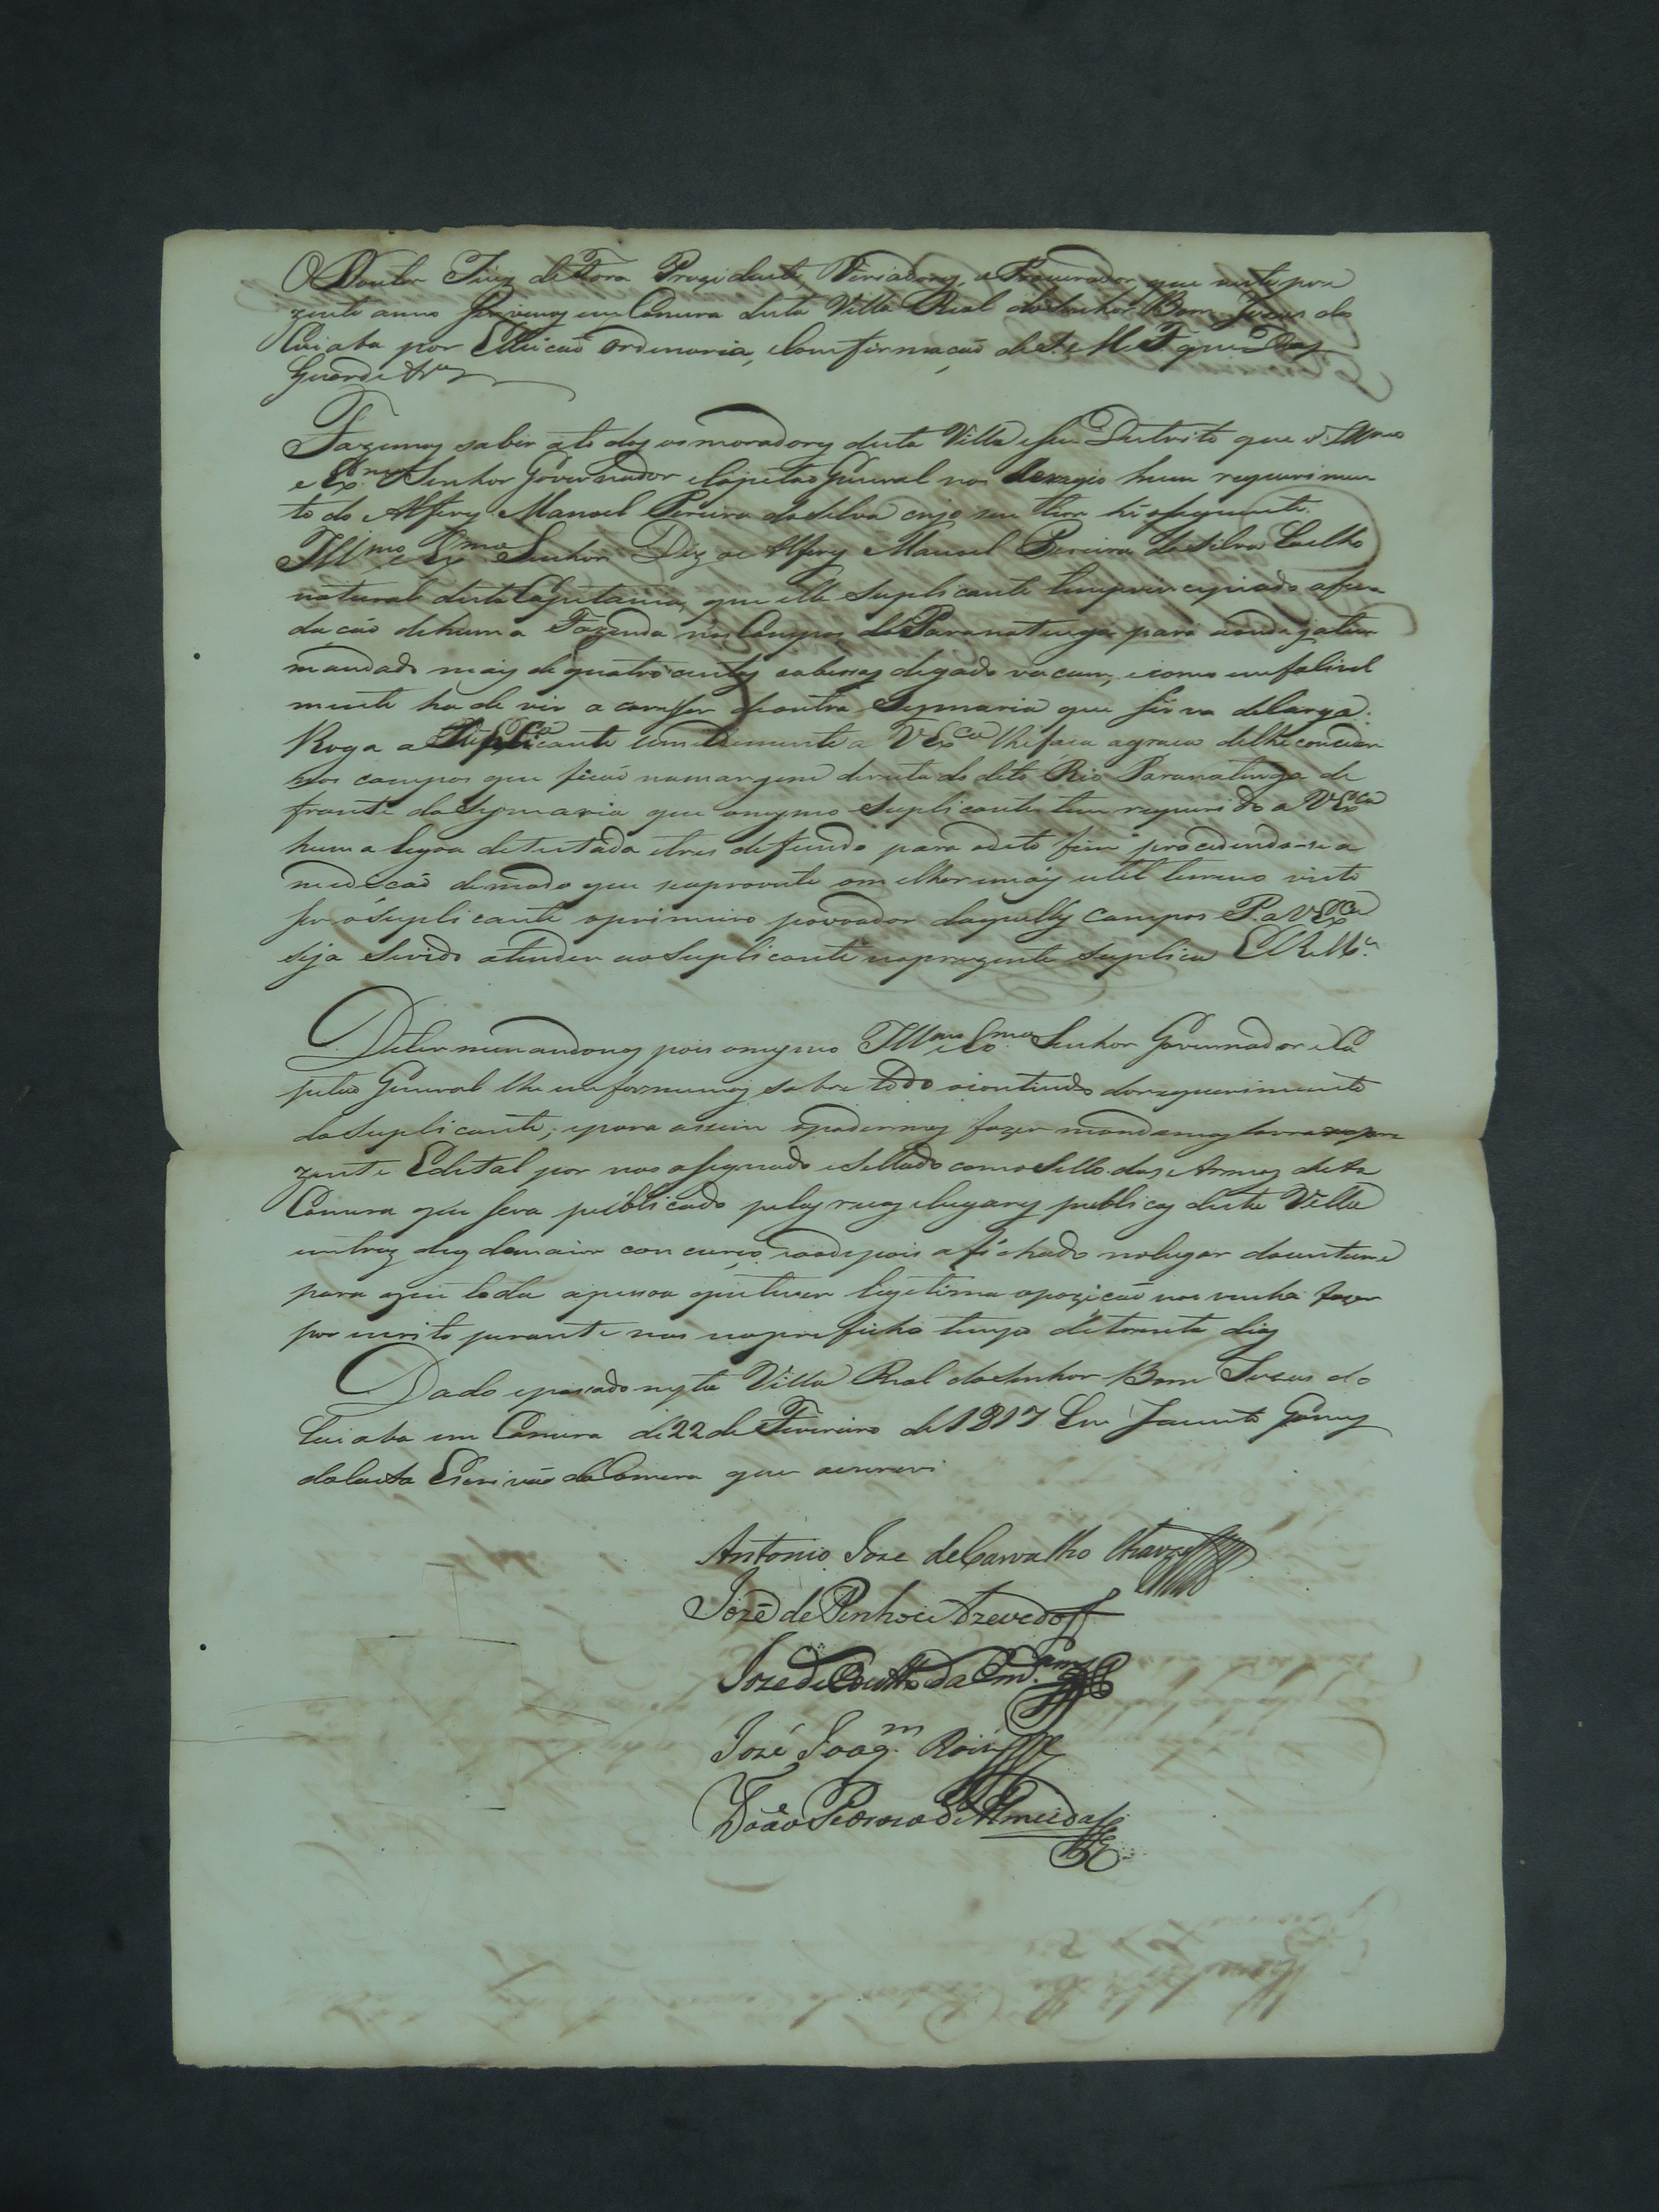 O Doutor Juiz de Fora Prezidente, Veriadores, e Procurador, que neste pre
zente anno servimos em Camera desta Villa Real do Senhor Bom Jezus do
Cuiaba por Elleicaõ ordinaria, e Comfirmaçaõ de S. M. F. que Deos
Guarde &ra
Fazemos saber ato dos os moradores desta Villa e seu Destrito que o Illmo
e Exmo Senhor Governador e Capitaõ General nos hum requerimen
to do Alferes Manoel Pereira da Silva cujo seu theor hé o seguinte.
Illmo e Exmo Senhor. Diz o Alferes Manoel Pereira da Silva Coelho
natural desta Capitania, que elle Suplicante tem principiado afun
dacaõ de huma Fazenda nos Campos do Paranatinga para aonde ja tem
mandado mais de quatro centos cabessas de gado vacum, e como emfalivel
mente ha de vir a carecer de outra Sesmaria que sirva de larga.
Roga o Suplicante umildemente a V Exca lhe faca a graca de lhe conceder
nos campos que ficaõ na margem direita do dito Rio Paranatinga de
fronte da Sesmaria que o mesmo Suplicante tem requerido a V Exca
huma legoa de testada e tres de fundo para o dito fim procedendo-se a
medicaõ de modo que se aproveite o melhor e mais util terreno visto
ser o Suplicante o primeiro povoador daquelles Campos P. a V Exca
seja Servido atender ao Suplicante na prezente Suplica E R Mce
Determinandonos pois o mesmo Illmo e Exmo Senhor Governador e Ca
pitaõ General lhe emformemos sobre todo o contiudo do requerimento
do Suplicante; e para assim o podermos fazer mandamos lavrar o pre
zente Edital por nos asignado e Sellado com o Sello das Armas desta
Camera que sera publicado pelas ruas e lugares publicos desta Villa
em tres dias de maior concurço, e ao depois afichado no lugar do custume
para que toda a pessoa que tiver legitima opoziçaõ nos venha fazer
por escrito perante nos no preficho tempo de trinta dias
Dado e passado nesta Villa Real do Senhor Bom Jezus do
Cuiaba em Camera de 22 de Fevereiro de 1817 Eu Jacinto Gomes
da Costa Escrivaõ da Camera que o escrevi
Antonio Joze de Carvalho Chaves
Jozé de Pinho e Azevedo
Joze de Couto da
José Joaqm Roiz
João Pedrozo de Almeida